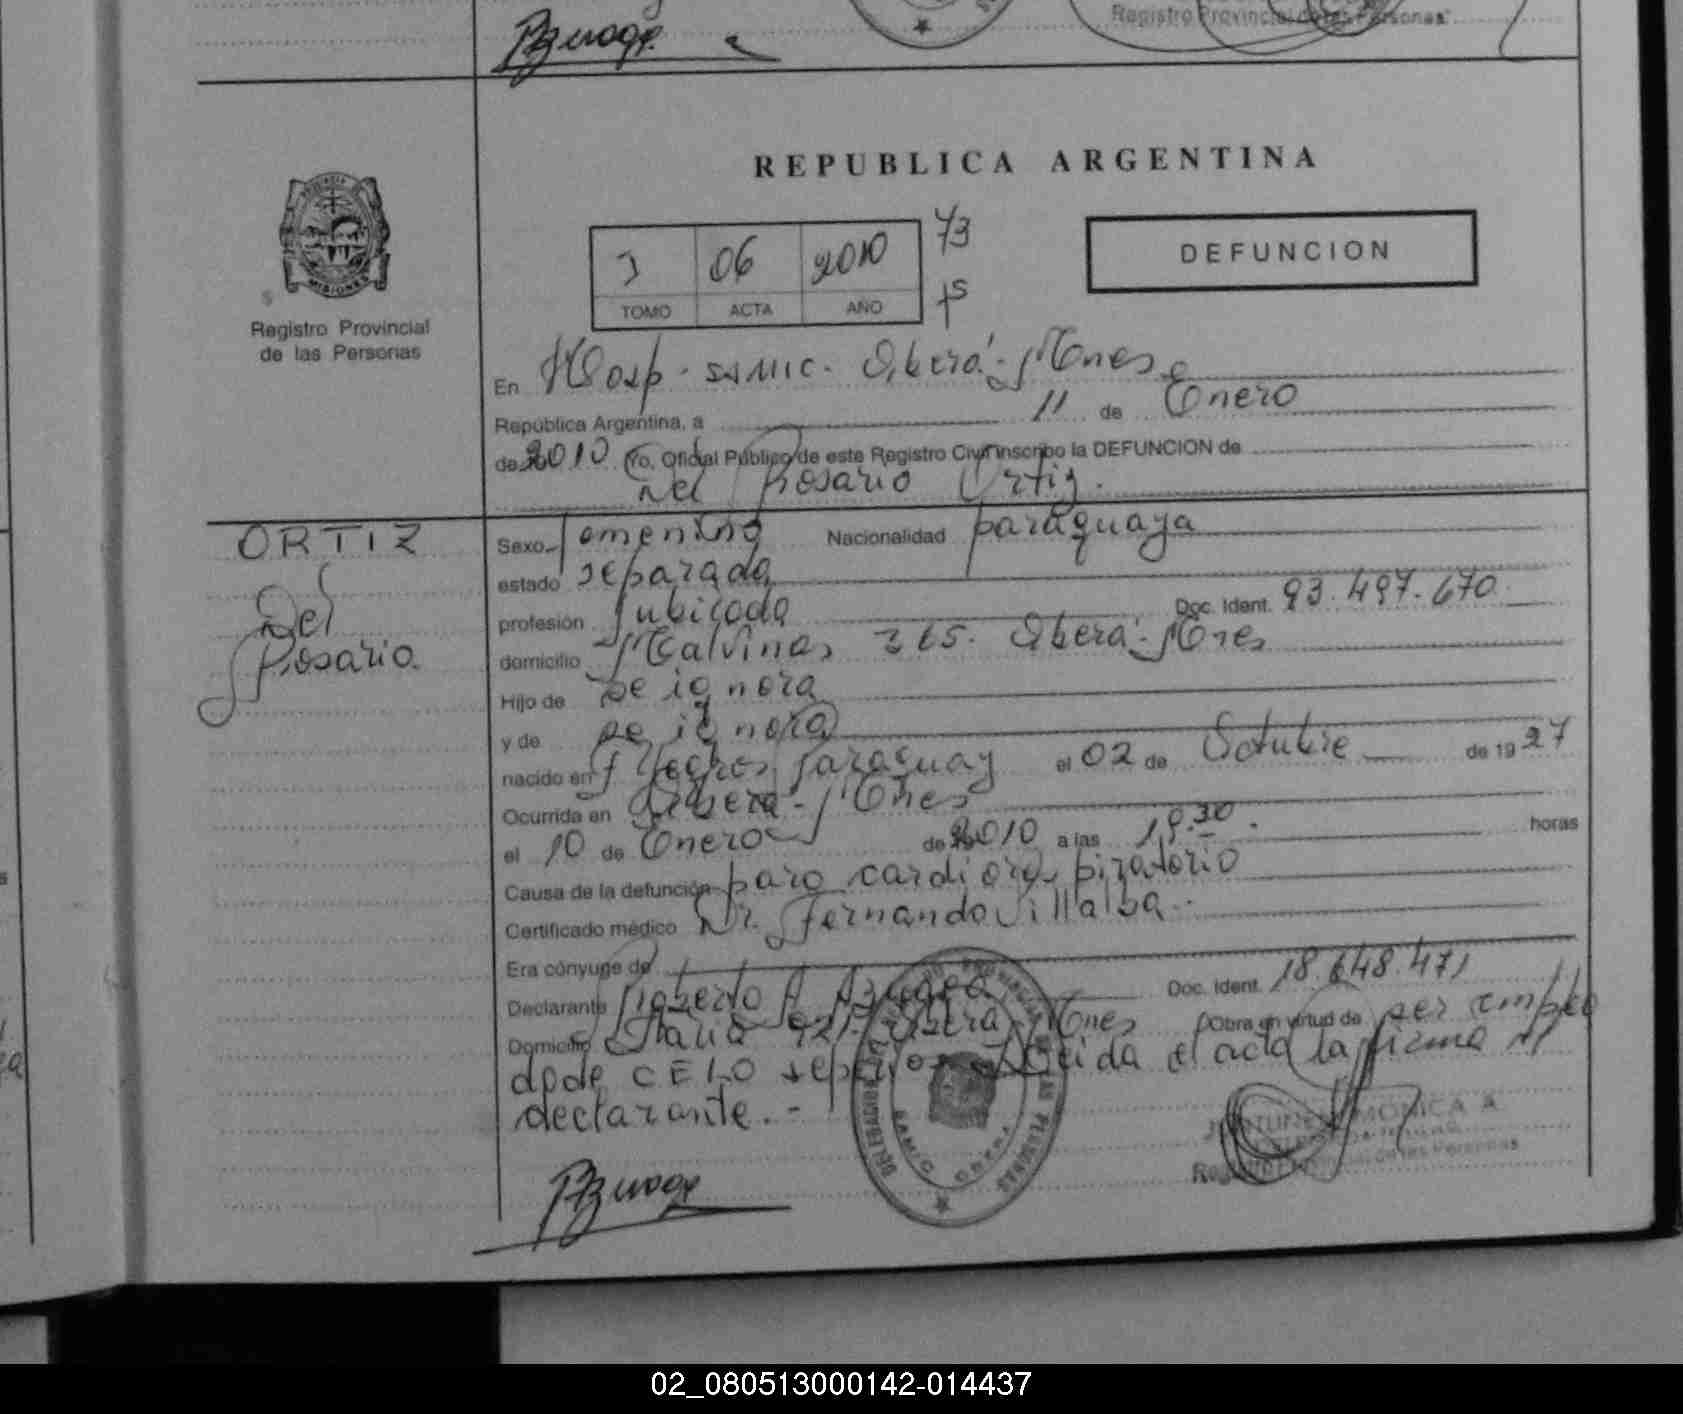 Registro Provincial de las Personas
REPUBLICA ARGENTINA
MISIONES
Registro Provincial
de las Personas
I 06 2010 73
TOMO ACTA AÑO
DEFUNCION
En Hosp. SAMIC. Oberá - Mnes
República Argentina, a 11 de Enero
de 2010 Yo, Oficial Público de este Registro Civil inscribo la DEFUNCION de
Del Rosario Ortiz.
ORTIZ
Del
Rosario.
Sexo femenino Nacionalidad paraguaya
estado separada
profesión jubilada Doc. Ident. 93.497.670
domicilio Malvinas 365. Oberá - Mnes
Hijo de se ignora
y de se ignora
nacido en Yegros Paraguay el 02 de Octubre de 1927
Ocurrida en Oberá - Mnes
el 10 de Enero de 2010 a las 19.30. horas
Causa de la defunción paro cardiorespiratorio
Certificado médico Dr. Fernando Villalba
Era cónyuge de
Declarante Rigberto A Doc. Ident. 18.648.471
Domicilio Oberá Mnes Obra en virtud de ser empleo
dode CELO Leida el acta la firma el
declarante.-
DE LAS PERSONAS
SAMIC OBERA
MONICA A.
Registro Provincial de las Personas
02_080513000142-014437